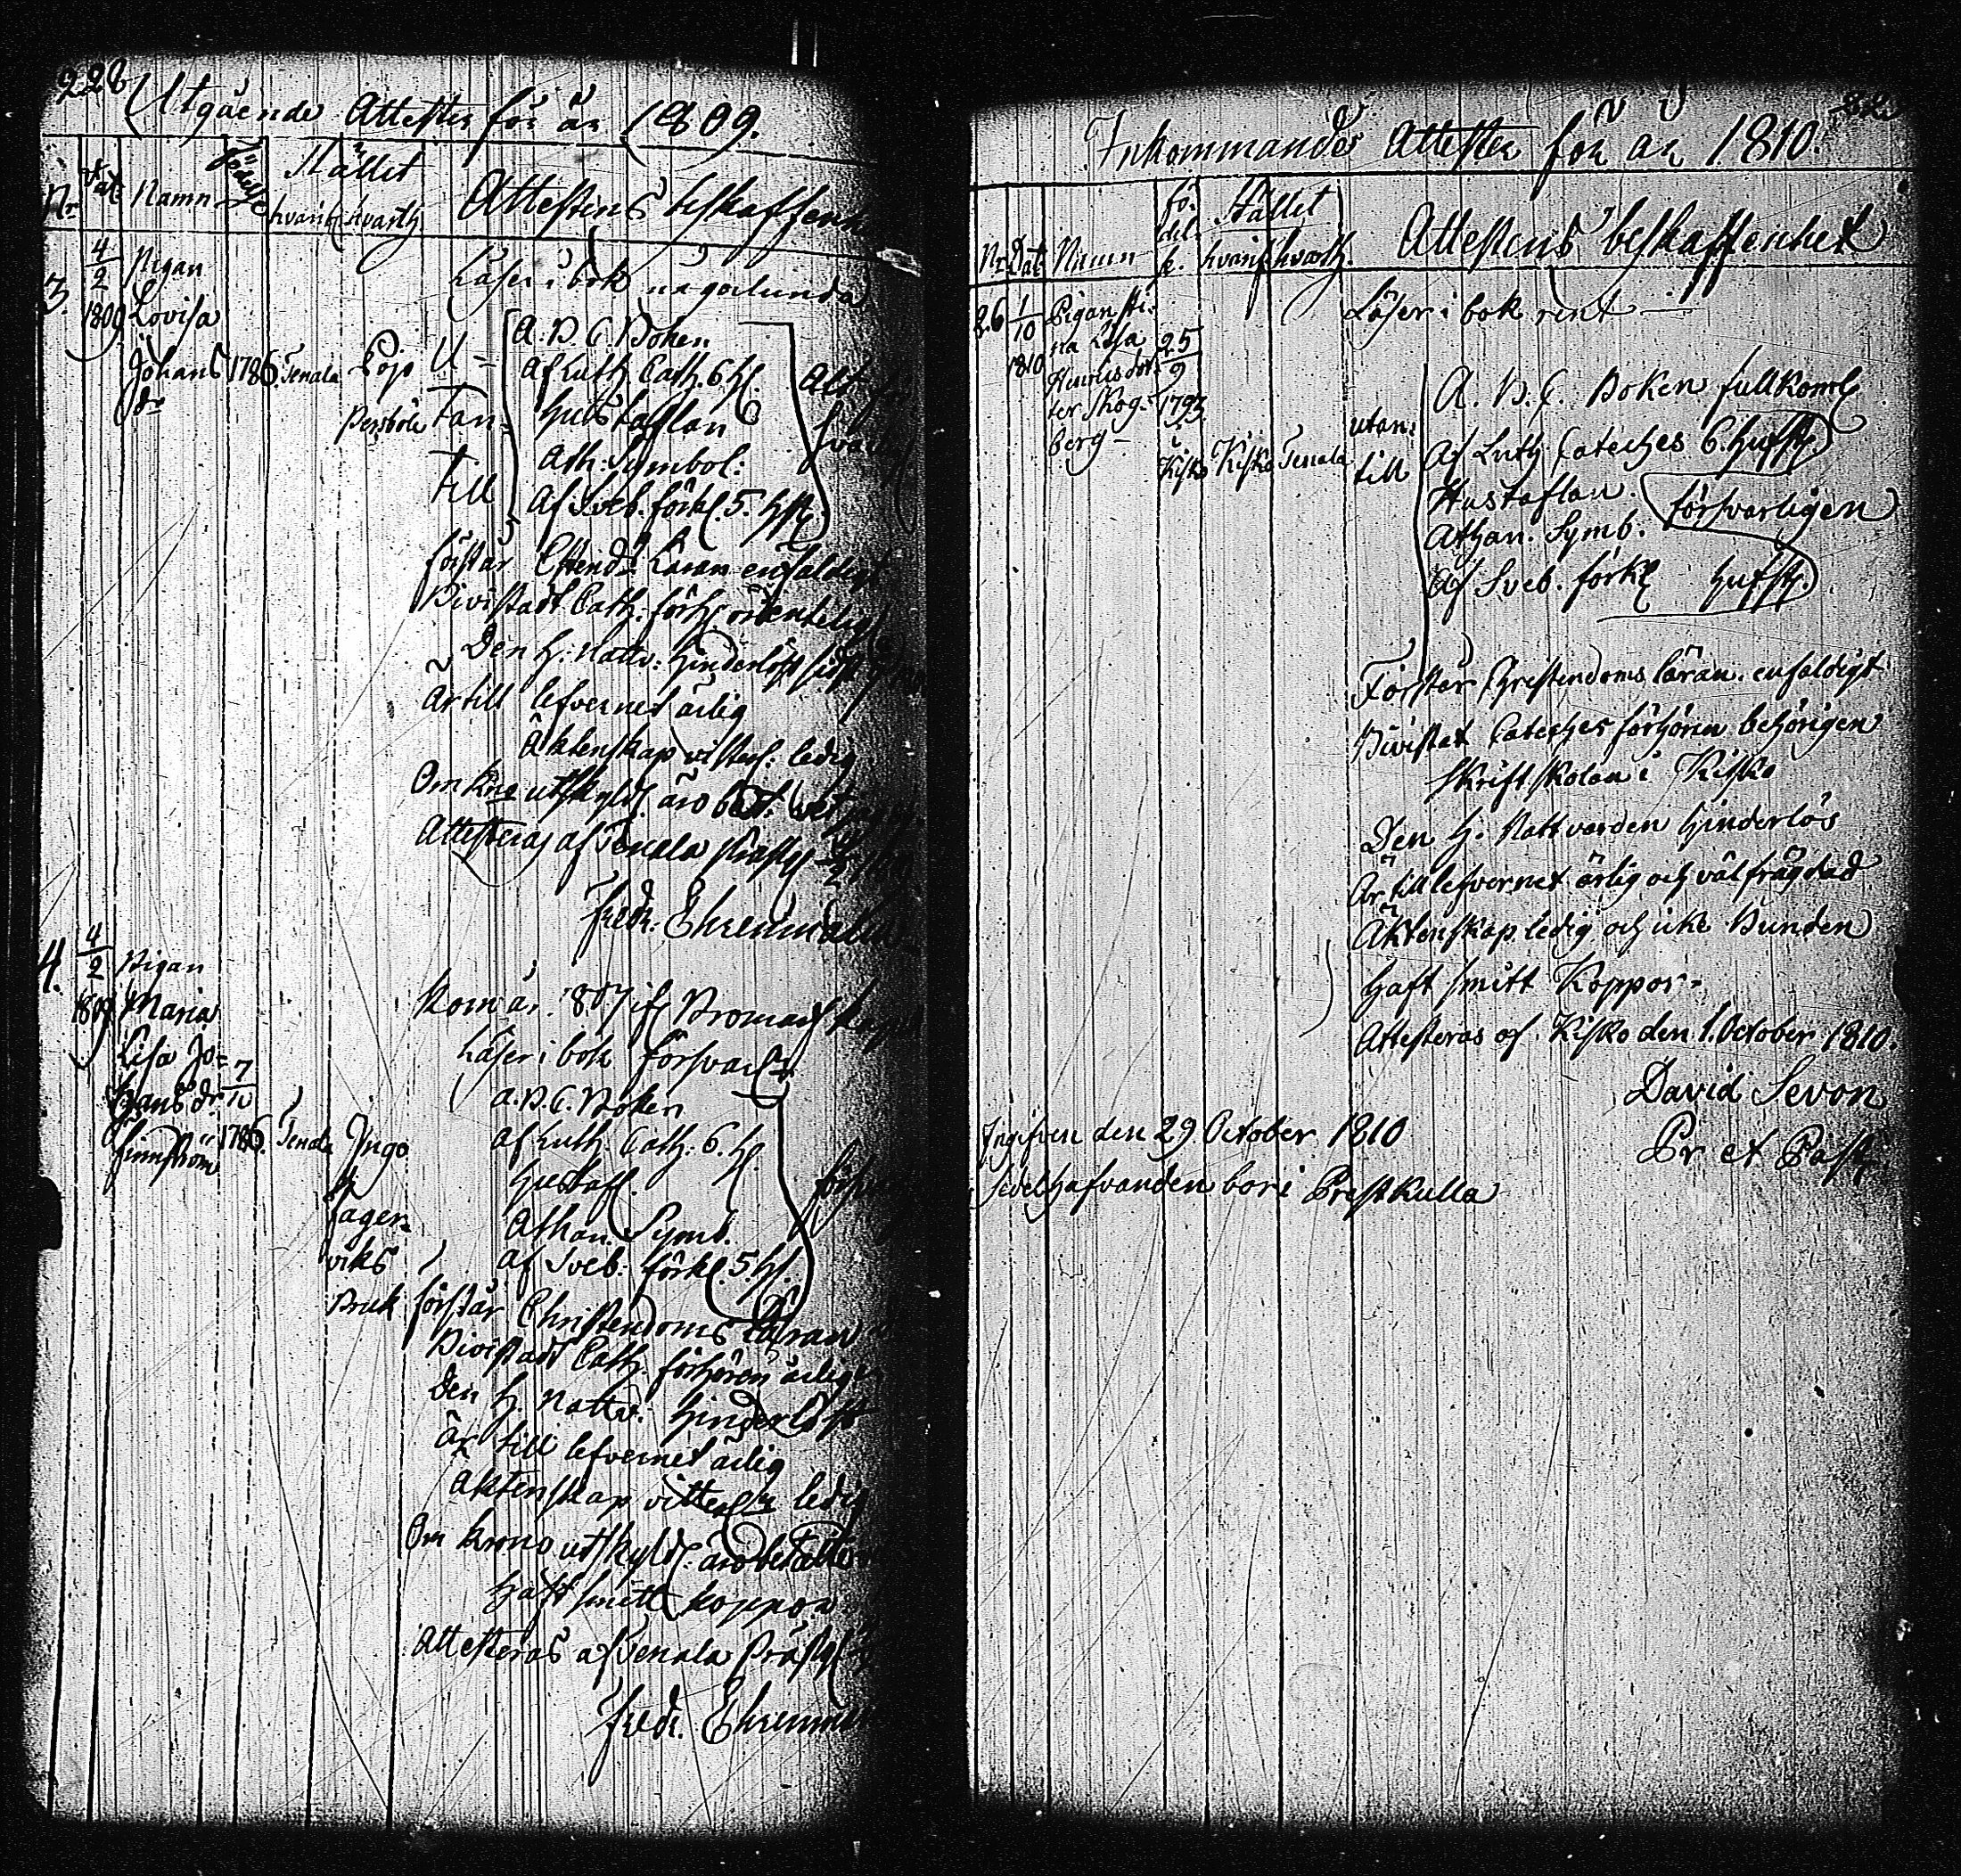 228
Utgående Attester för år 1809.
Nr Dat Namn Födelse Stället hvarifr. hvarth. Attestens beskaffenh
3. 4/2 1809 Pigan
Lovisa
Johans
dr 1786 Tenala Pojo
Persböle
Läser i bok någorlunda
Utan-
till
A.B.C. Boken
Af Luth. Cath. 6 H.
Hustaflan
Ath. Symbol:
Af Sveb. förkl. 5. H.
förstår Christend. Läran enfaldigt
Bivistadt Cath. förh. ordentelig
Den H. Nattv: hinderlöst
Är till lefvernet ärlig
Äktenskap ledig
Om utskyld. äro
Attesteras af Tenala
Fredr. Ehrenmalm
4. 4/2 1809 Pigan
Maria
Lisa Jo-
hans dr
Finnström 7/10 1786. Tenala Ingo
Fager-
viks
Bruk
kom år 1807 ifr. Bromarf
Läser i bok försvarl.
A.B.C. Boken
Af Luth. Cath: 6. H.
Hustafl.
Athan. Symb.
Af Sveb: förkl. 5. H.
förstår Christendoms Läran
Bivistadt Cath. förhören årlig
Den H. Nattv. hinderlöst
Är till lefvernet ärlig
Äktenskap ledig
Om krono utskyld. äro betalte
Haft smitt koppor
Attesteras af Tenala Prästg.
Fredr. Ehrenm
Inkommande Attester för år 1810.
Nr Dat Namn fö-
del-
se. Stället
hvarifr. hvarth. Attestens beskaffenhet
26 1/10 1810 Pigan Sti-
na Lisa
Henricsdot-
ter Skog-
berg 25/9 1793
Kisko Kisko Tenala
Läser i bok rent
utan-
till
A. B. C. Boken fullkoml.
Af Luth. Cateches 6 Hufst.
Hustaflan. försvarligen
Athan. Symb.
Af Sveb. förkl. Hufst.
Förstår Christendoms läran enfaldigt
Bivistat Cateches förhören behörigen
Skriftskolan i Kisko
Den H. Nattvarden hinderlös
Är till lefvernet ärlig och välfrägdad
Äktenskap ledig och icke Bunden
Haft smitt Koppor.
Attesteras af Kisko den 1. October 1810.
David Sevon
Pr et Past
Ingifven den 29 October 1810
Sedelhafvanden bor i Prestkulla